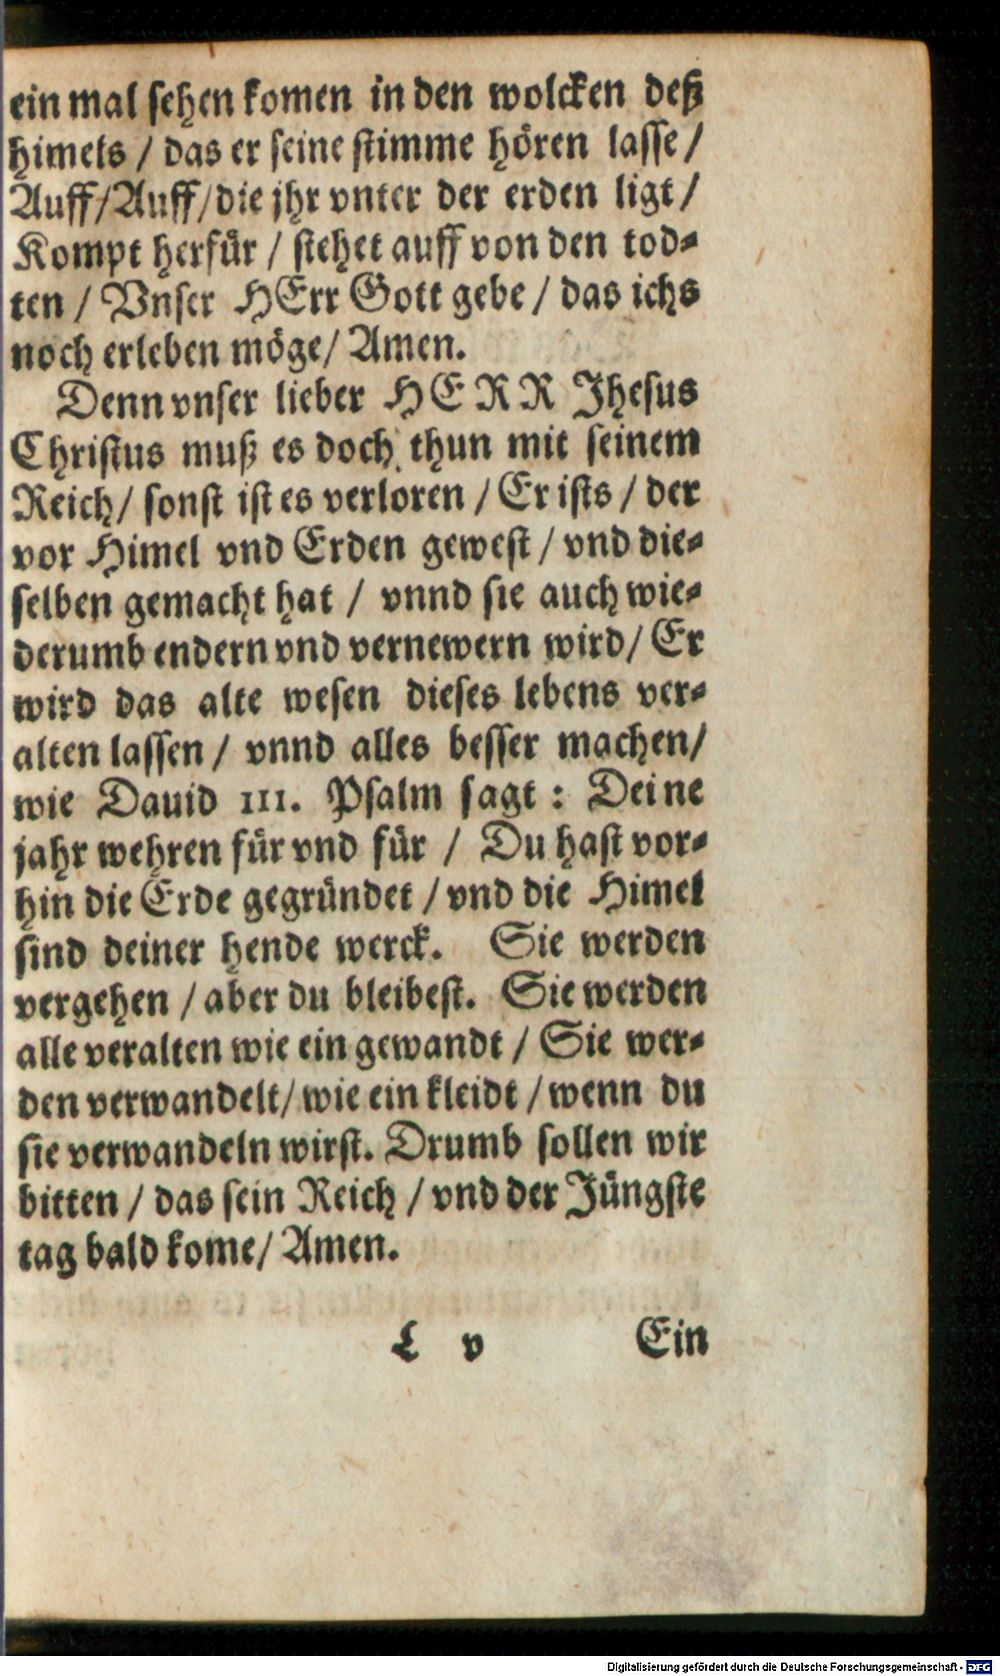 ein mal sehen komen in den wolcken deß
himels / das er seine stimme hören lasse /
Auff / Auff / die jhr vnter der erden ligt /
Kompt herfür / stehet auff von den tod-
ten / Vnser HErr Gott gebe / das ichs
noch erleben möge / Amen.
Denn vnser lieber HERR Jhesus
Christus muß es doch thun mit seinem
Reich / sonst ist es verloren / Er ists / der
vor Himel vnd Erden gewest / vnd die-
selben gemacht hat / vnnd sie auch wie-
derumb endern vnd vernewern wird / Er
wird das alte wesen dieses lebens ver-
alten lassen / vnnd alles besser machen /
wie Dauid III. Psalm sagt : Deine
jahr wehren für vnd für / Du hast vor-
hin die Erde gegründet / vnd die Himel
sind deiner hende werck. Sie werden
vergehen / aber du bleibest. Sie werden
alle veralten wie ein gewandt / Sie wer-
den verwandelt / wie ein kleidt / wenn du
sie verwandeln wirst. Drumb sollen wir
bitten / das sein Reich / vnd der Jüngste
tag bald kome / Amen.
L v Ein
Digitalisierung gefördert durch die Deutsche Forschungsgemeinschaft - DFG